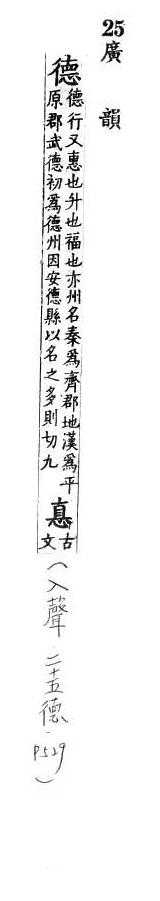 25
廣韻
德 德行又惠也升也福也亦州名秦為齊郡地漢為平
原郡武德初為德州因安德縣以名之多則切九
悳 古文
(入聲·二十五德·P529)